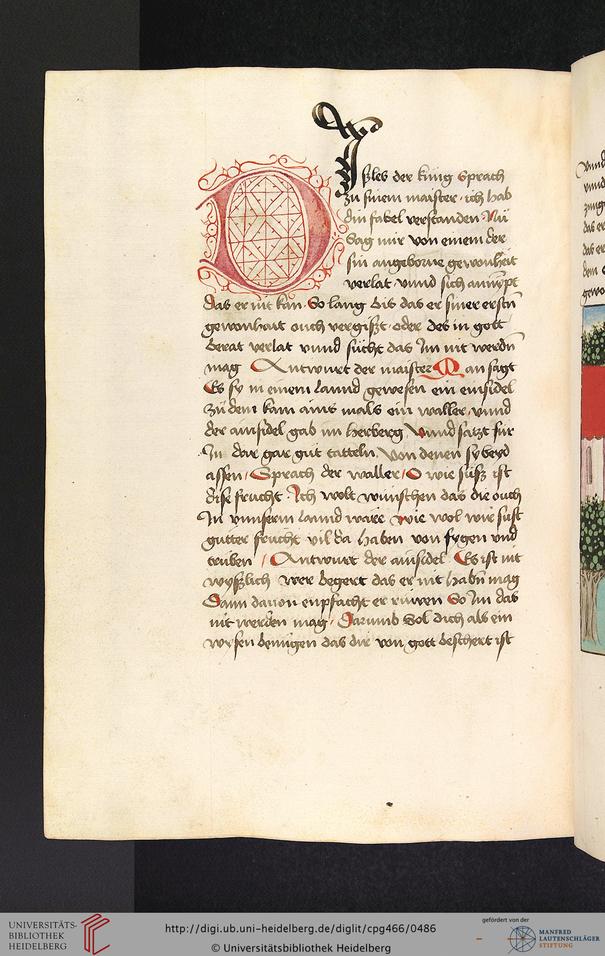 D
Ißles der küng sprach
zu sinem maister · ich hab
din fabel verstanden · Nu
sag mir von einem der
sin angeborne gewonheit
verlat vnnd sich annÿpt
das er nit kan · So lang bis das er siner erstn
gewonhait ouch vergißt oder des in gott
berat verlat vnnd sücht das Im nit werdn
mag Antwurt der maister Man sagt
Es sy in einem lannd gewesen ein einsidel
zu dem kam ains mals ein waller / vnnd
der ainsidel gab im herberg vnnd satzt für
In dar gar gut tatteln von denen sy beyd
assen / Sprach der waller / O wie süß ist
dise frucht Ich wolt wünschen das die ouch
In vnnserm lannd ware wie wol wir sust
gutter frücht vil da haben von fygen vnd
truben / Antwurt der ainsidel Es ist nit
wyßlich wer begert das er nit habn mag
Dann dauon enpfacht er rüwen So Im das
nit werden mag / Darumb sol dich als ein
wysen benügen das dir von gott beschert ist
UNIVERSITÄTS-
BIBLIOTHEK
HEIDELBERG
http://digi.ub.uni-heidelberg.de/diglit/cpg466/0486
© Universitätsbibliothek Heidelberg
gefördert von der
MANFRED
LAUTENSCHLÄGER
STIFTUNG